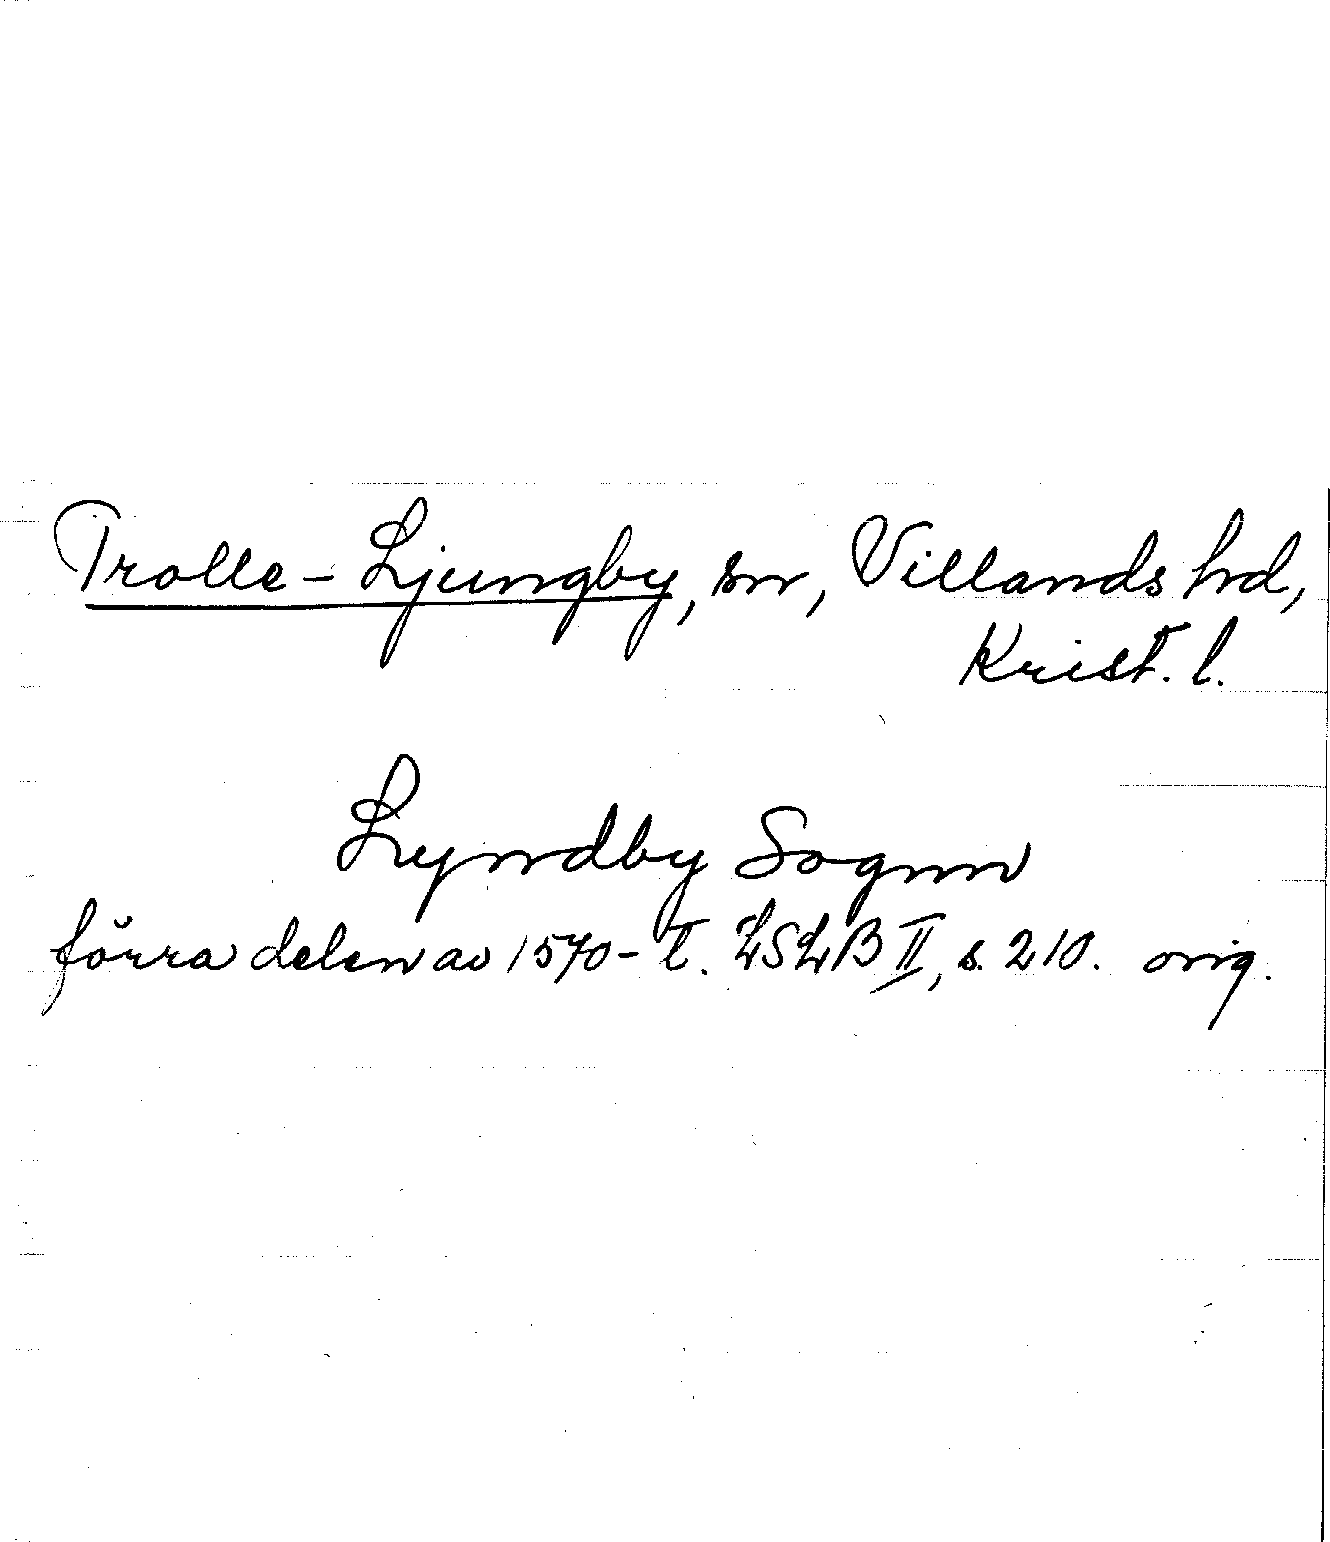 Trolle-Ljungby, sn, Villands hd,
Krist. l.
Lyndby Sognn
förra delen av 1570-t. LSLB II, s. 210. orig.